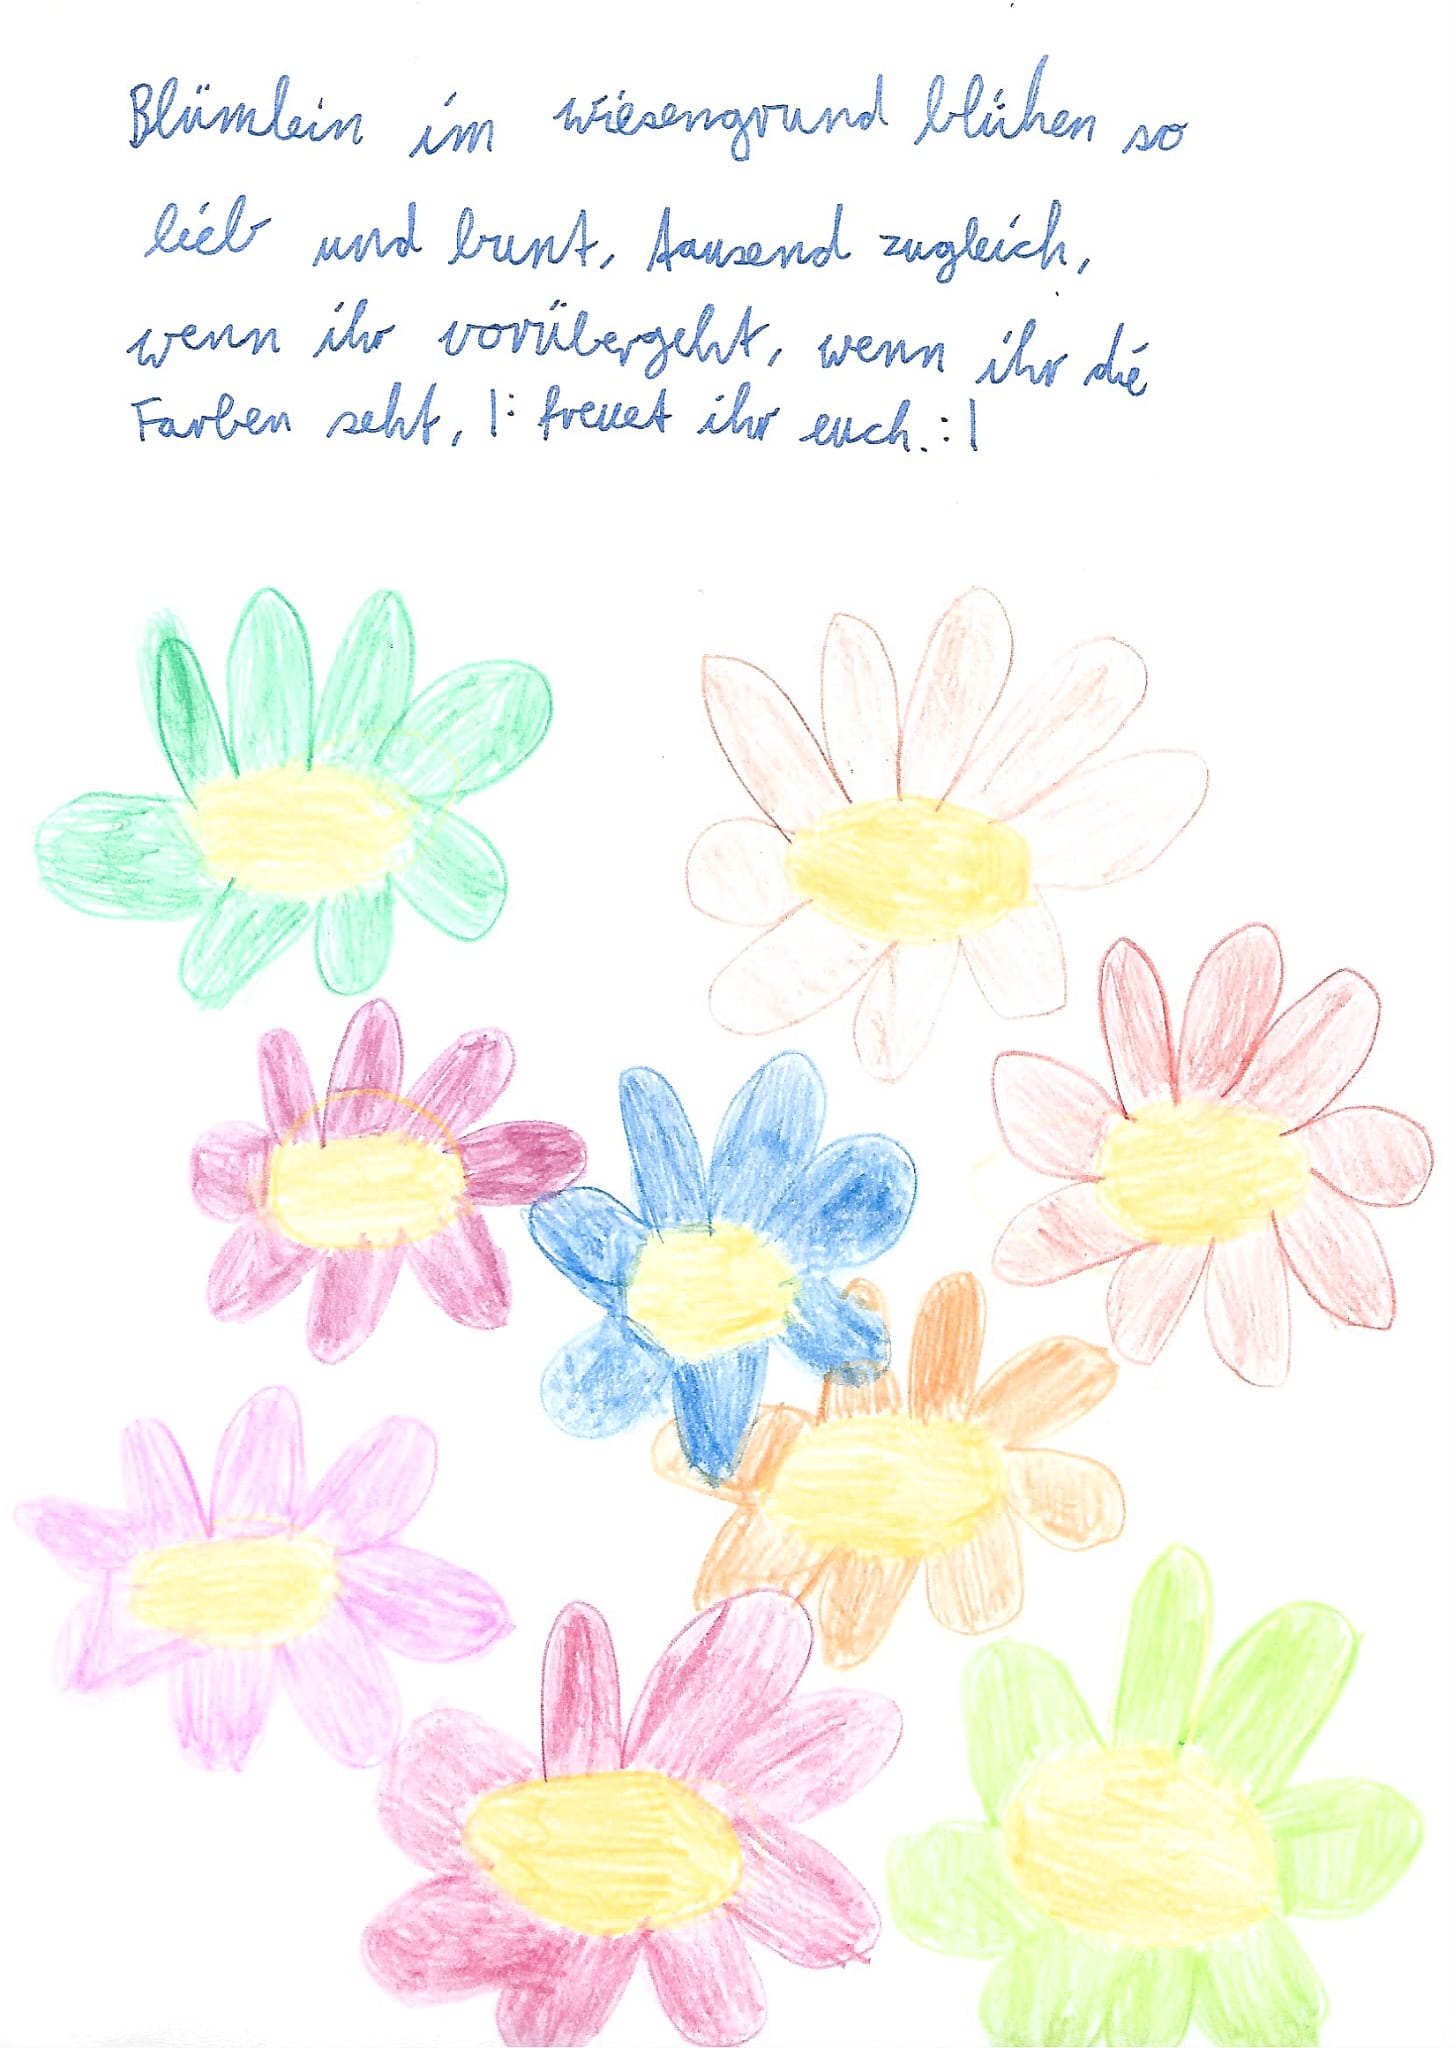 Blümlein im wiesengrund blühen so
lieb und bunt, tausend zugleich,
wenn ihr vorübergeht, wenn ihr die
Farben seht, |: freuet ihr euch. :|